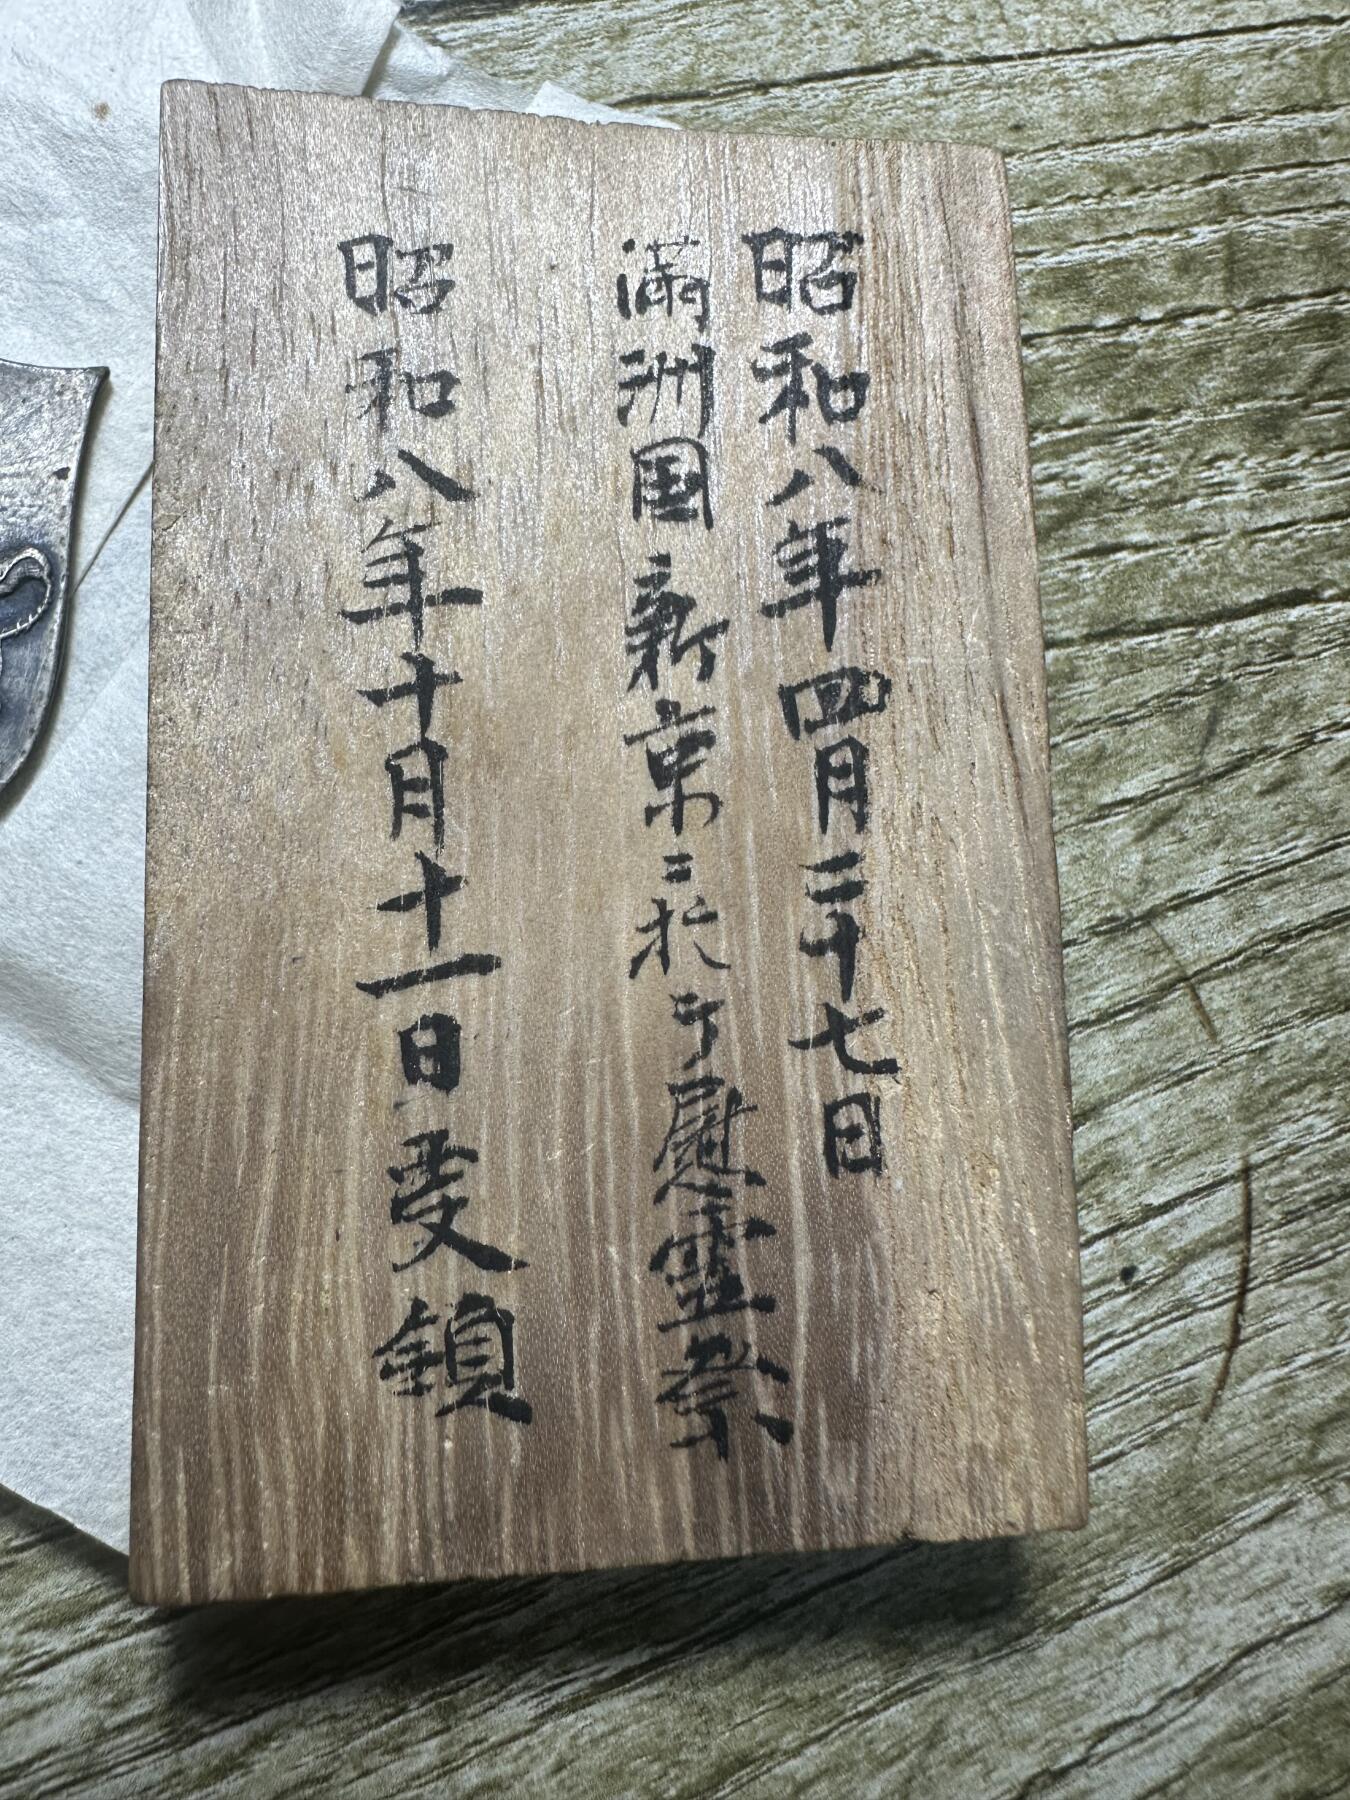 昭和八年四月二十七日
満洲国新京ニ於テ慰霊祭
昭和八年十月十一日受領